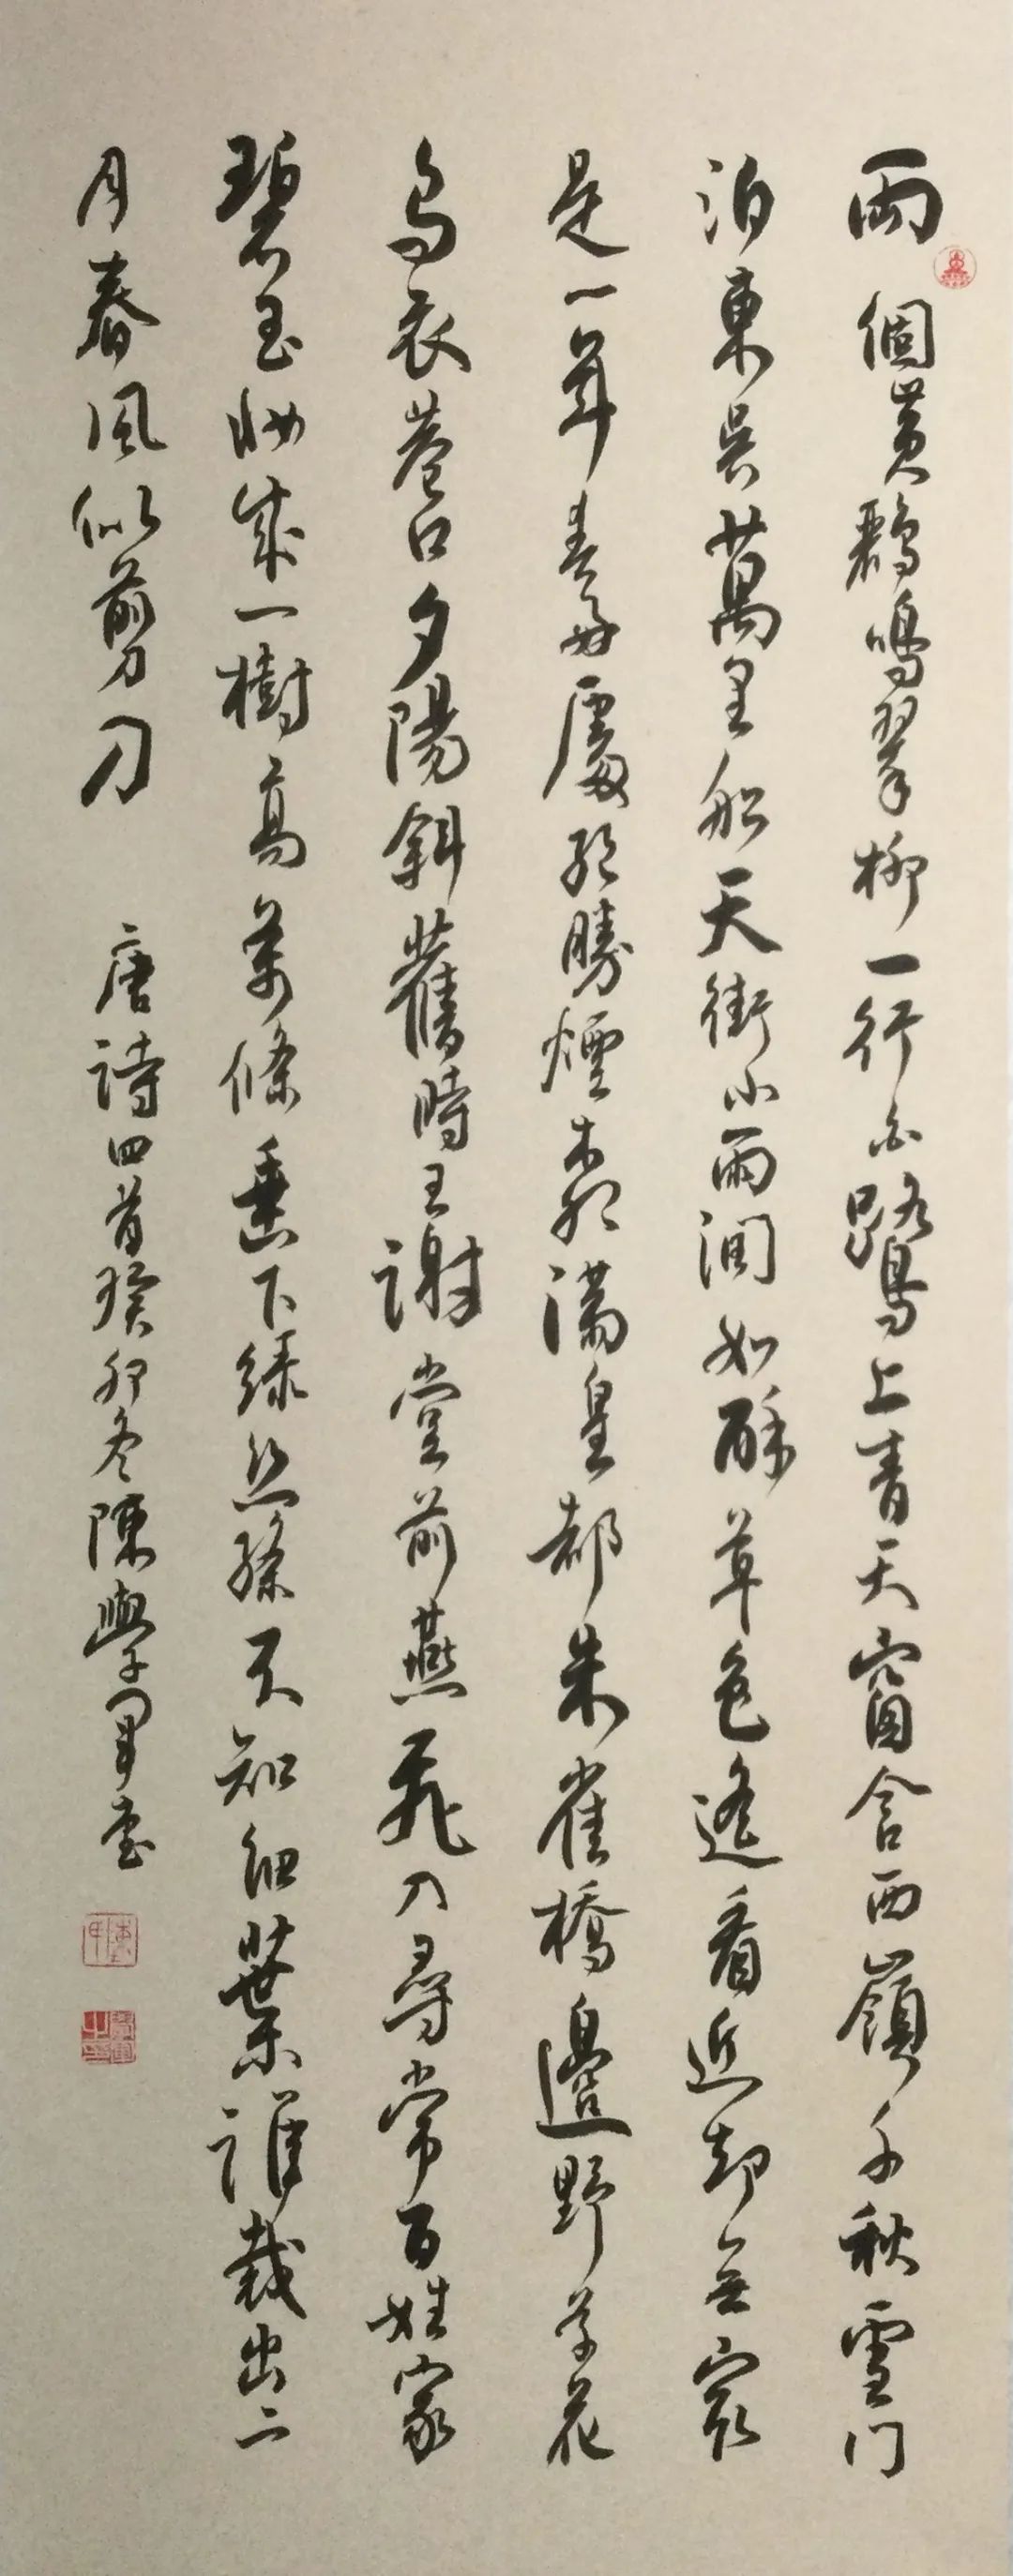 兩個黃鸝鳴翠柳一行白鷺上青天窗含西嶺千秋雪門
泊東吳萬里船天街小雨潤如酥草色遙看近却無最
是一年春好處絕勝煙柳滿皇都朱雀橋邊野草花
烏衣巷口夕陽斜舊時王謝堂前燕飛入尋常百姓家
碧玉妝成一樹高萬條垂下綠絲絛不知細葉誰裁出二
月春風似剪刀 唐詩四首癸卯冬陳學軍書